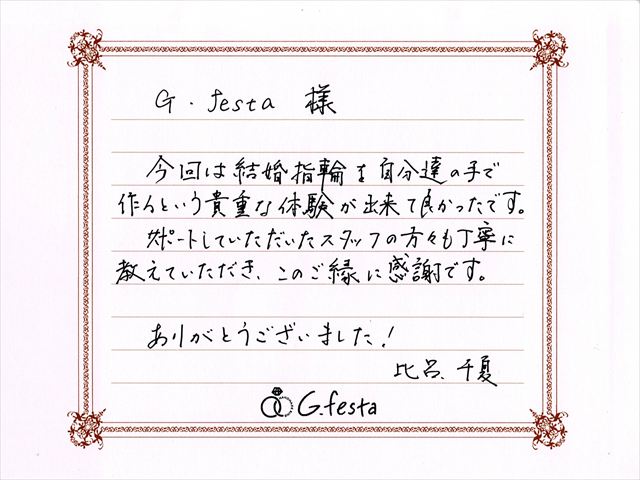 G.festa 様
今回は結婚指輪を自分達の手で
作るという貴重な体験が出来て良かったです。
サポートしていただいたスタッフの方々も丁寧に
教えていただき、このご縁に感謝です。
ありがとうございました!
比呂、千夏
G.festa